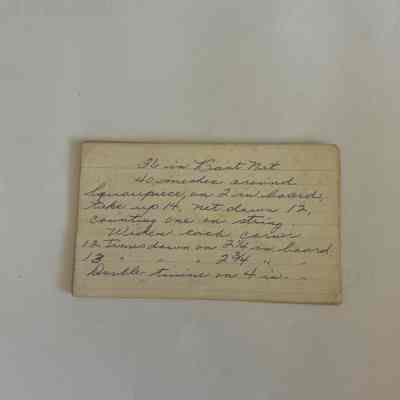 36 in Bait Net
40 meshes around
Square piece, on 2 in board,
take up 14, net down 12,
counting one on string.
Widen each corner
12 times down on 2 1/4 in board.
13 " " " 2 3/4 " "
Double twine on 4 in "